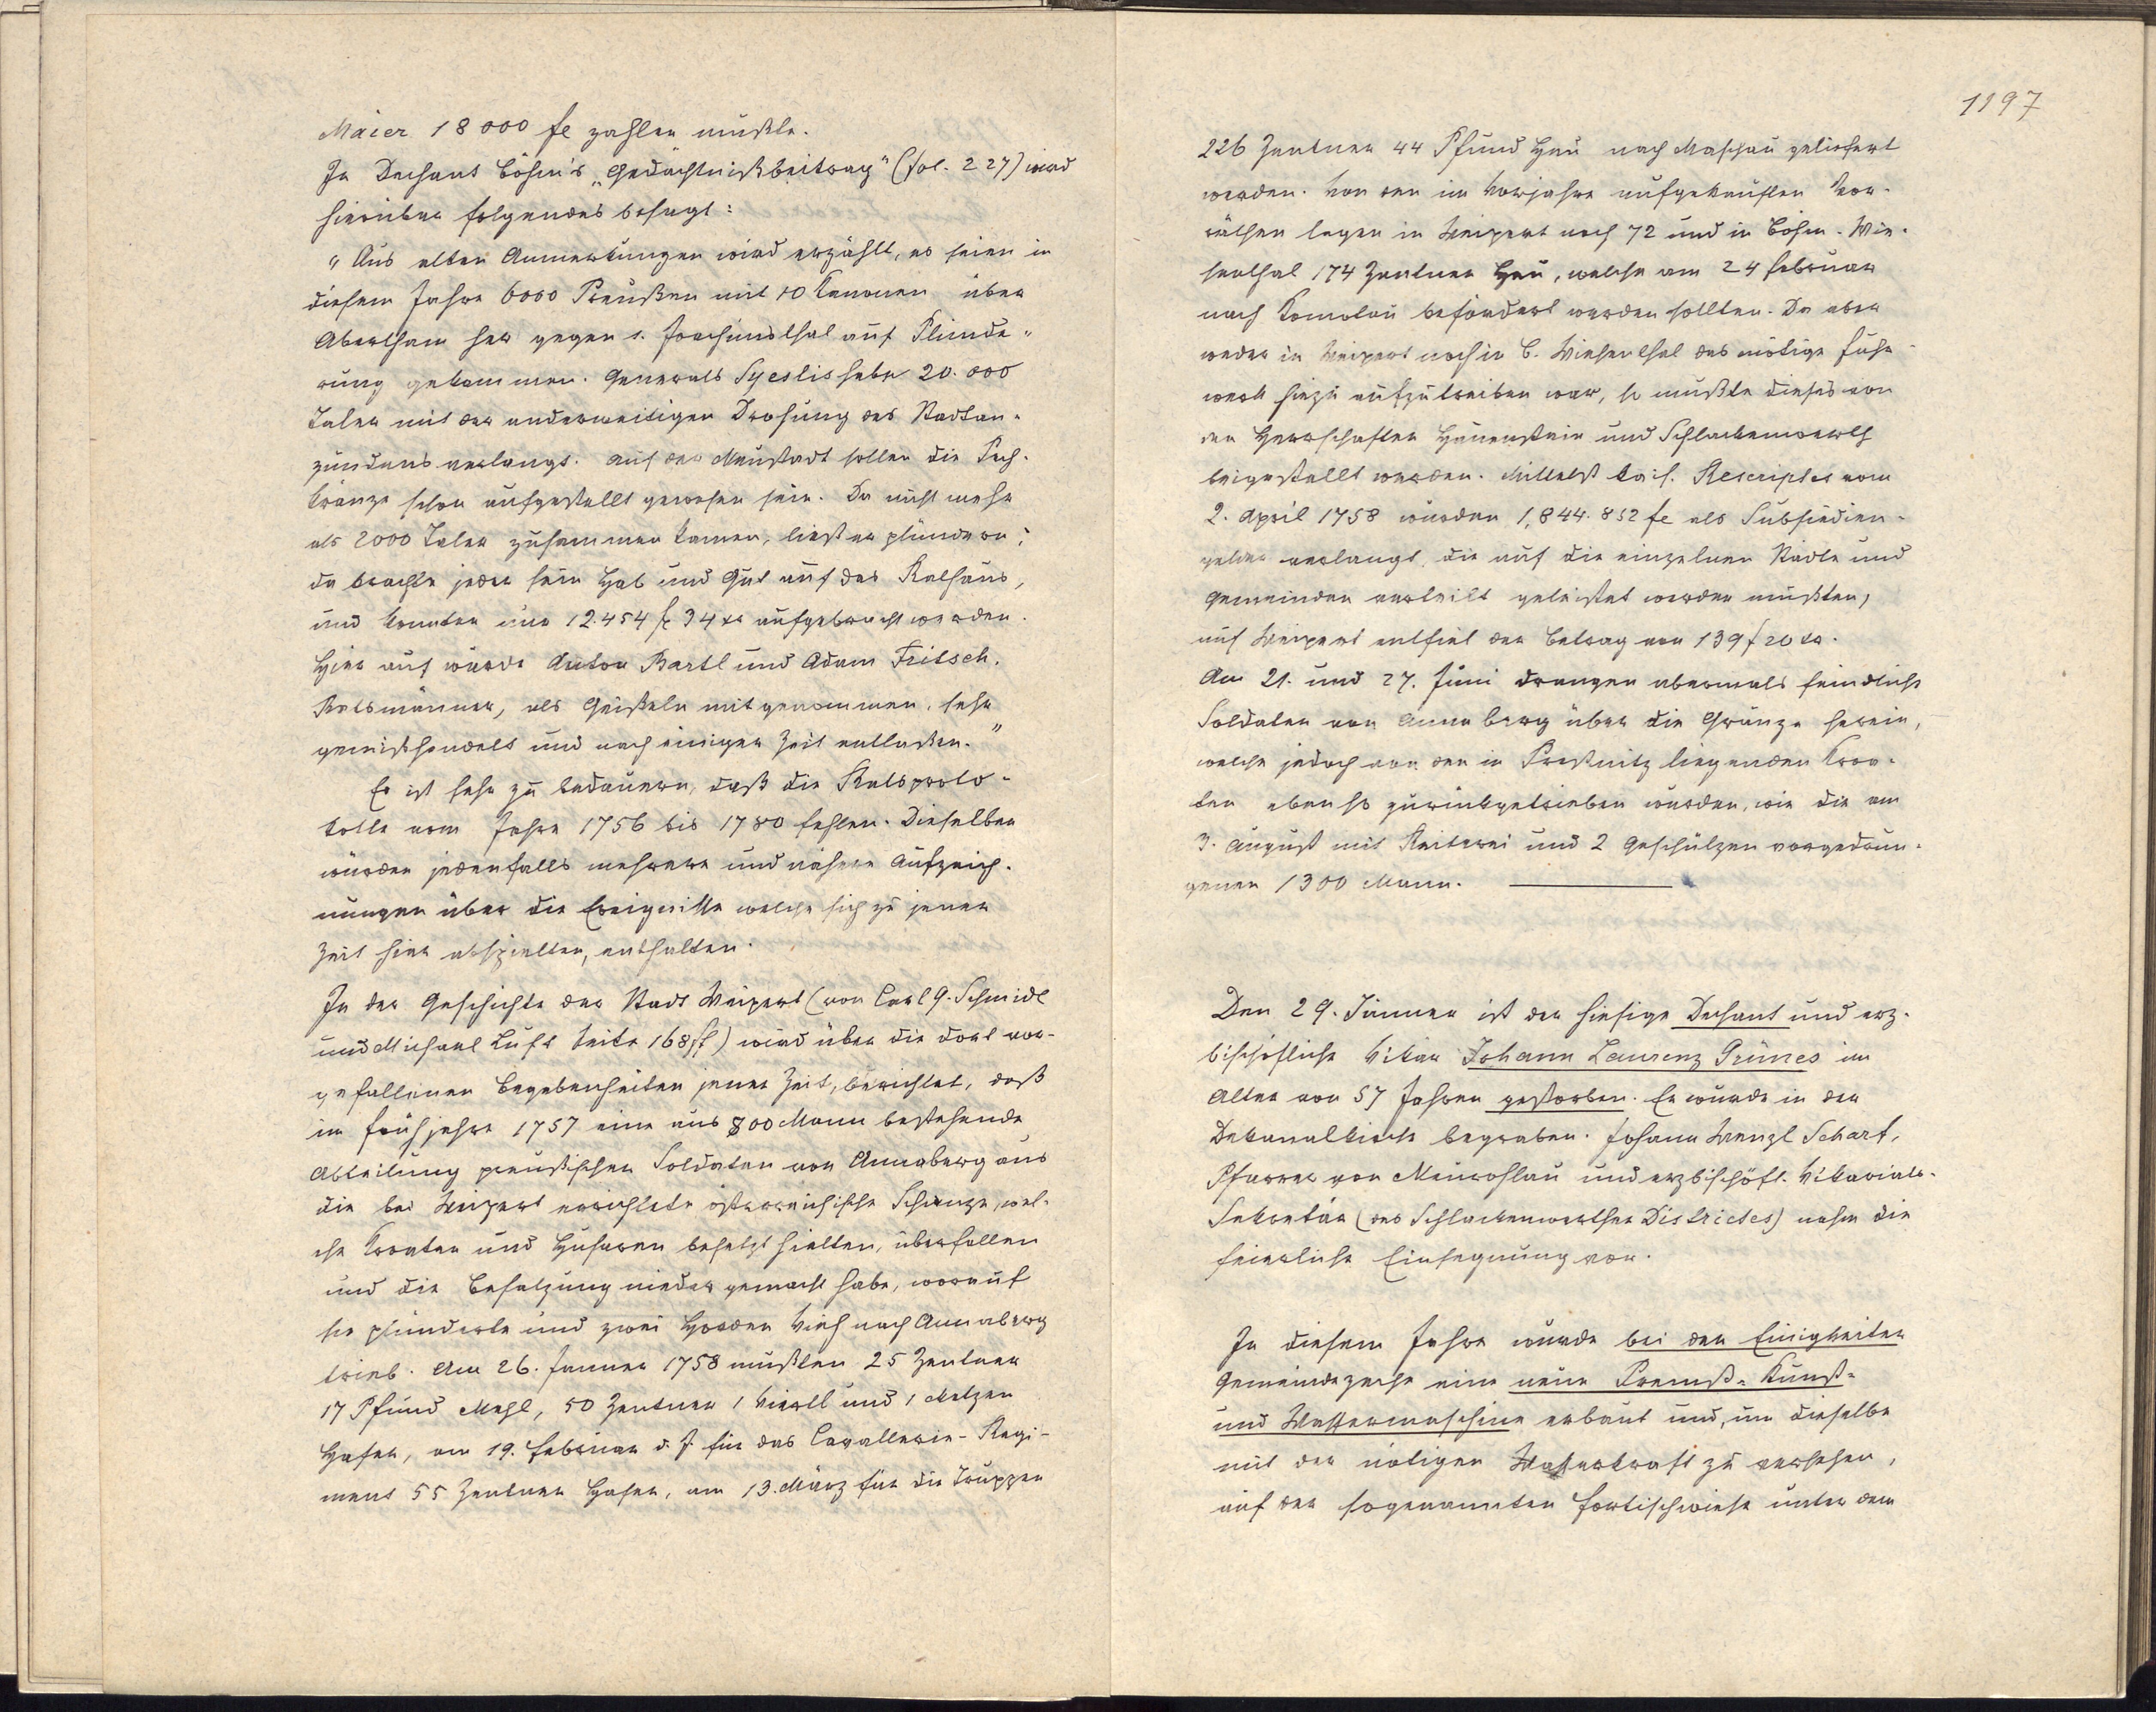 Maier 18000 fl zahlen mußte.
In Dechant Böhm's „Gedächtnißbeitrag" (fol. 227) wird
hierüber folgendes besagt:
„Aus alten Anmerkungen wird erzählt, es seien in
diesem Jahre 6000 Preußen mit 10 Kanonen über
Abertham her gegen S. Joachimsthal auf Plünde-
rung gekommen. General habe 20.000
Taler mit der anderweitigen Drohung des Stadtan-
zündens verlangt. Auf der Neustadt sollen die Pech-
kränze schon aufgestellt gewesen sein. Da nicht mehr
als 2000 Taler zusammen kamen, ließ er plündern;
da brachte jeder sein Hab und Gut auf das Rathaus,
und konnten nur 12.454 fl 34 xr aufgebracht werden.
Hier auf wurde Anton Bartl und Adam Fritsch,
Ratsmänner, als Geißeln mitgenommen, sehr
gemißhandelt und nach einiger Zeit entlassen."
Es ist sehr zu bedauern, daß die Ratsproto-
kolle vom Jahre 1756 bis 1780 fehlen. Dieselben
würden jedenfalls mehrere und nähere Aufzeich-
nungen über die Ereignisse welche sich zu jener
Zeit hier abspielten, enthalten.
In der Geschichte der Stadt Weipert (von Carl G. Schmidl
und Michael Luft Seite 168 ff) wird über die dort vor-
gefallenen Begebenheiten jener Zeit, berichtet, daß
im Frühjahre 1757 eine aus 800 Mann bestehende
Abteilung preußischer Soldaten von Annaberg aus
die bei Weipert errichtete österreichische Schanze, wel-
che Kroaten und Husaren besetzt hielten, überfallen
und die Besatzung nieder gemacht habe, worauf
sie plünderte und zwei Heerden Vieh nach Annaberg
trieb. Am 26. Jänner 1758 mußten 25 Zentner
17 Pfund Mehl, 50 Zentner 1 Viertl und 1 Metzen
Hafer, am 19. Februar d. J. für das Cavallerie-Regi-
ment 55 Zentner Hafer, am 13. März für die Truppen
1197
226 Zentner 44 Pfund Heu nach Maschau geliefert
werden. Von den im Vorjahre aufgekauften Vor-
räthen lagen in Weipert noch 72 und in Böhm. Wie-
senthal 174 Zentner Heu, welche am 24 Februar
nach Komotau befördert werden sollten. Da aber
weder in Weipert noch in B. Wiesenthal das nötige Fuhr-
werk hiezu aufzutreiben war, so mußte dieses von
den Herrschaften Hauenstein und Schlackenwerth
beigestellt werden. Mittelst kais. Rescriptes vom
2. April 1758 wurden 1,844.852 fl als Subsidien-
gelder verlangt, die auf die einzelnen Städte und
Gemeinden verteilt geleistet werden mußten,
auf Weipert entfiel der Betrag von 139 f 20 xr.
Am 21. und 27. Juni drangen abermals feindliche
Soldaten von Annaberg über die Gränze herein,
welche jedoch von den in Preßnitz liegenden Kroa-
ten ebenso zurückgetrieben wurden, wie die am
3. August mit Reiterei und 2 Geschützen vorgedrun-
genen 1300 Mann.
Den 29. Jänner ist der hiesige Dechant und erz-
bischöfliche Vikar Johann Laurenz Grünes im
Alter von 57 Jahren gestorben. Er wurde in der
Dekanalkirche begraben. Johann Wenzl Scharf,
Pfarrer von Neurohlau und erzbischöfl. Vikariats-
Sekretär (des Schlackenwerther Districtes) nahm die
feierliche Einsegnung vor.
In diesem Jahre wurde bei der Einigkeiter
Gemeindezeche eine neue Premß-Kunst-
und Wassermaschine erbaut und, um dieselbe
mit der nötigen Wasserkraft zu versehen,
auf der sogenannten Fortischwiese unter dem